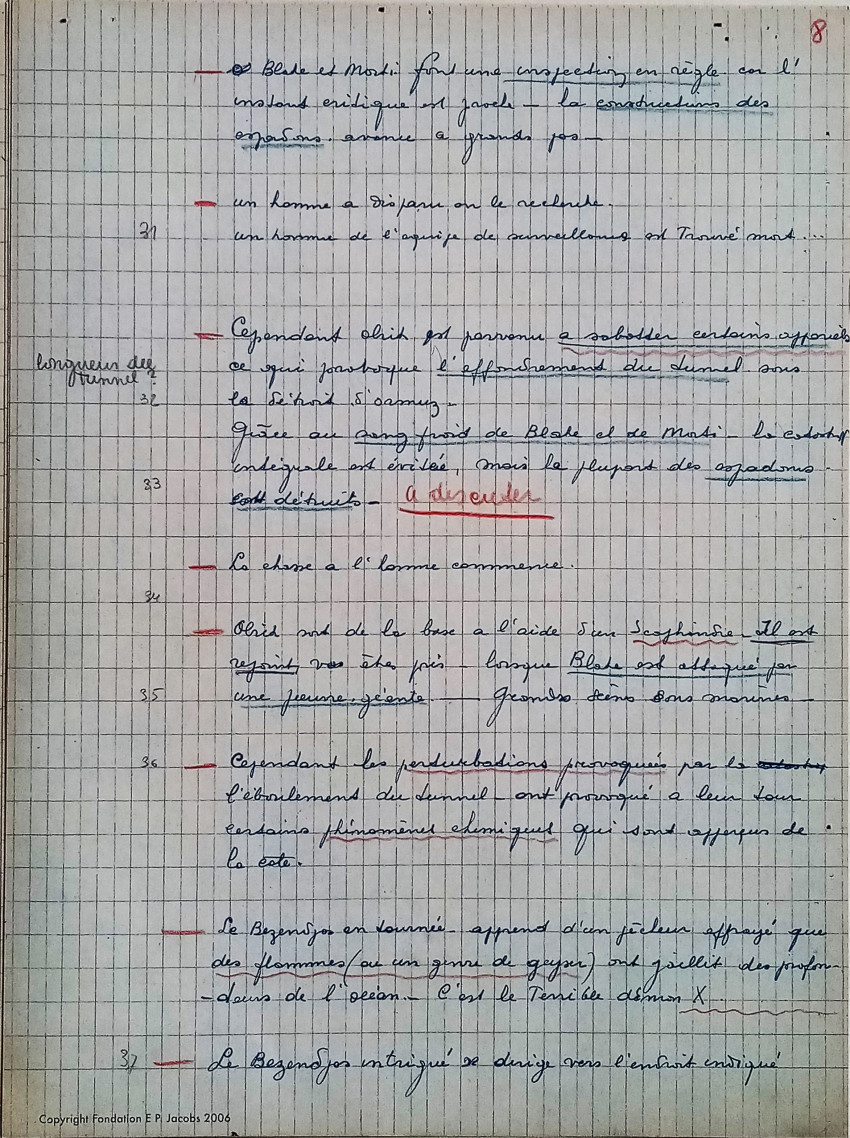 8
— Blake et Morti font une inspection en règle car l'
instant critique est proche — la construction des
espadons. avance a grands pas —
— un homme a disparu on le recherche.
31 un homme de l'equipe de surveillance est Trouvé mort...
— Cependant Olrik est parvenu a sabotter certains appareils
longueur du
tunnel ?
ce qui provoque l'effondrement du tunnel sous
32 le détroit d'ormuz —
Grâce au sang froid de Blake et de Morti — la catastroff
intégrale est évitée, mais la plupart des espadons
33 sont détruits — A discuter
— La chasse a l'homme commence.
34
— Olrik sort de la base a l'aide d'un Scaphandre — Il est
rejoint, va être pris — lorsque Blake est attaqué par
35 une pieuvre géante. — Grande scène sous marine —
36 — Cependant les perturbations provoquées par la
l'éboulement du tunnel — ont provoqué a leur tour
certains phénomènes chimiques qui sont apperçus de
la cote.
— Le Bezendjas en tournée — apprend d'un pêcheur effrayé que
des flammes (ou un genre de geyser) ont jaillit des profon-
-deurs de l'océan — C'est le Terrible démon X
37 — Le Bezendjas intrigué se dirige vers l'endroit indiqué
Copyright Fondation E P. Jacobs 2006